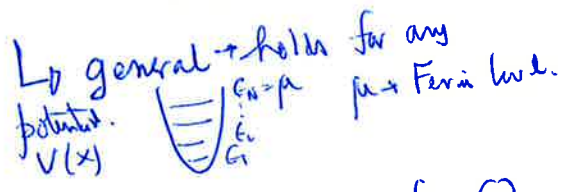 ↳ general → holds for any
potential.
V(x)
ϵN = μ
⋮
ϵ2
ϵ1
μ → Fermi level.